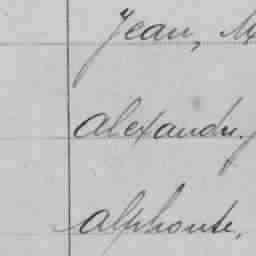 Jean, M
Alexandre,
Alphonse,